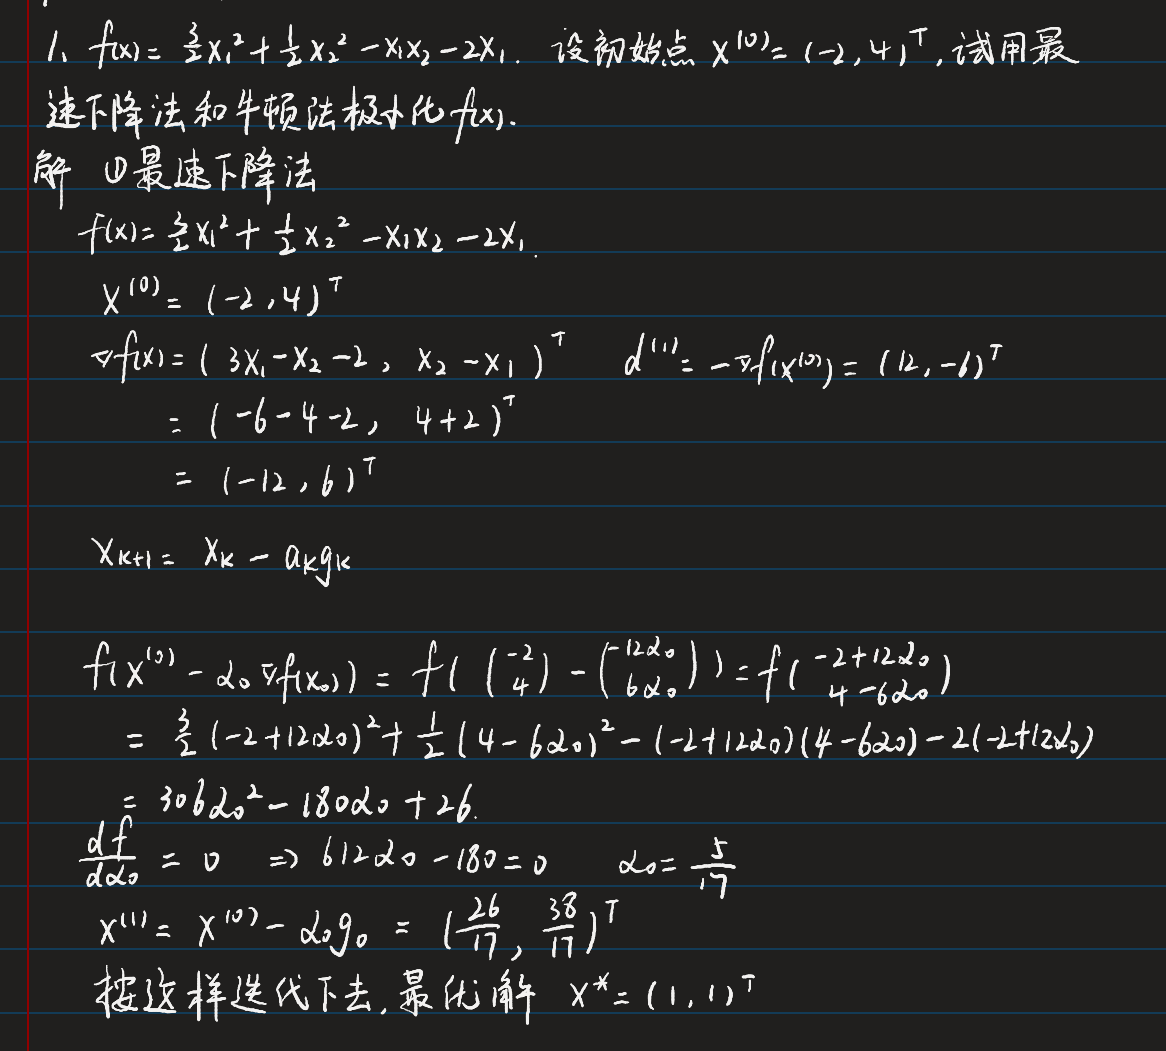 1、f(x)= 3/2 x₁² + 1/2 x₂² - x₁x₂ - 2x₁. 设初始点 x⁽⁰⁾ = (-2, 4)ᵀ, 试用最
速下降法和牛顿法极小化 f(x).
解 ①最速下降法
f(x)= 3/2 x₁² + 1/2 x₂² - x₁x₂ - 2x₁.
x⁽⁰⁾ = (-2, 4)ᵀ
∇f(x) = (3x₁-x₂-2, x₂-x₁)ᵀ d⁽¹⁾ = -∇f(x⁽⁰⁾) = (12, -6)ᵀ
= (-6-4-2, 4+2)ᵀ
= (-12, 6)ᵀ
x_{k+1} = x_k - a_k g_k
f(x⁽⁰⁾ - α₀∇f(x₀)) = f((-2 4) - (-12α₀ 6α₀)) = f(-2+12α₀ 4-6α₀)
= 3/2 (-2+12α₀)² + 1/2 (4-6α₀)² - (-2+12α₀)(4-6α₀) - 2(-2+12α₀)
= 306α₀² - 180α₀ + 26.
df/dα₀ = 0 ⇒ 612α₀ - 180 = 0 α₀ = 5/17
x⁽¹⁾ = x⁽⁰⁾ - α₀g₀ = (26/17, 38/17)ᵀ
按这样迭代下去, 最优解 x* = (1, 1)ᵀ